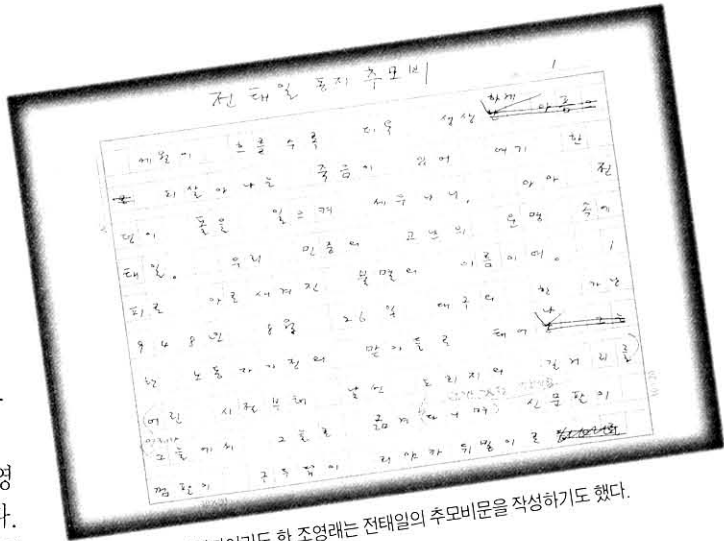 전태일 동지 추모비
1
세월이 흐를수록 더욱 생생하게
되살아나는 죽음이 있어 여기 한
덩이 돌을 일으켜 세우나니, 아아 전
태일. 우리 민중의 고난의 운명 속에
피로 아로새겨진 불멸의 이름이여. 1
948년 8월 26일 대구의 한 가난
한 노동자가정의 맏아들로 태어나
어린 시절부터 낯선 도회지의 길거리를
그늘에서 그늘로 옮겨 신문팔이
껌팔이 구두닦이 리어카 뒤밀이로
영
다.
한 조영래는 전태일의 추모비문을 작성하기도 했다.